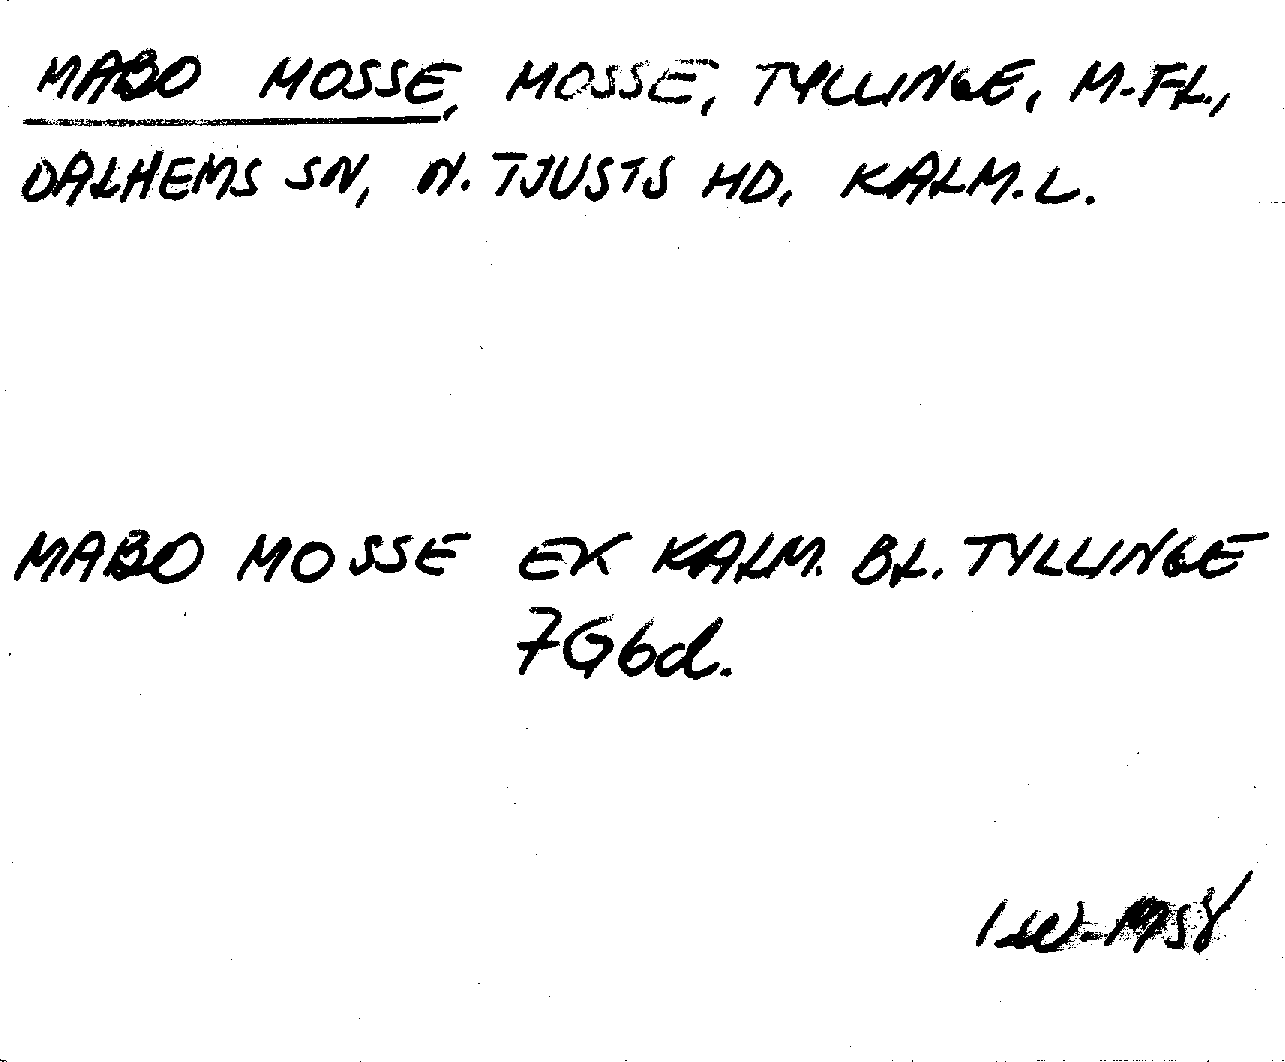 MABO MOSSE, MOSSE, TYLLINGE, M.FL.,
DALHEMS SN, N. TJUSTS HD, KALM. L.
MABO MOSSE EK KALM. BL. TYLLINGE
7G6d.